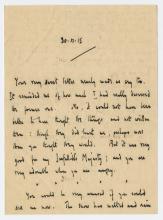 30-12-15
Your very sweet letter nearly made me cry too.
It reminded me of how much I had really deserved
the former one. No, it would not have been
better to have fought the things and not written
them; though they did hurt us, perhaps more
than you thought they would. But it was very
good for my Infallible Majesty; and you are
very adorable when you are angry.
You would be very amused if you could
see me now. The snow has melted and rain